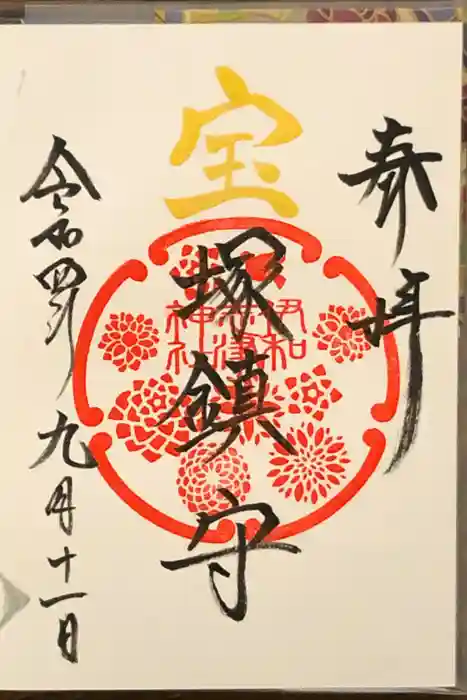 奉拝
宝塚鎮守
伊和
志津
神社
令和四年九月十一日